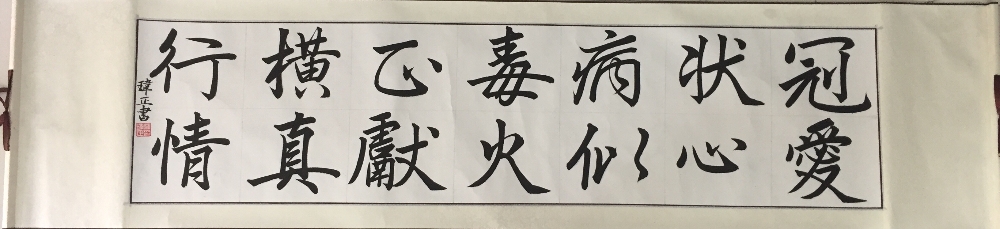 冠状病毒正横行
愛心似火獻真情
瑋正書